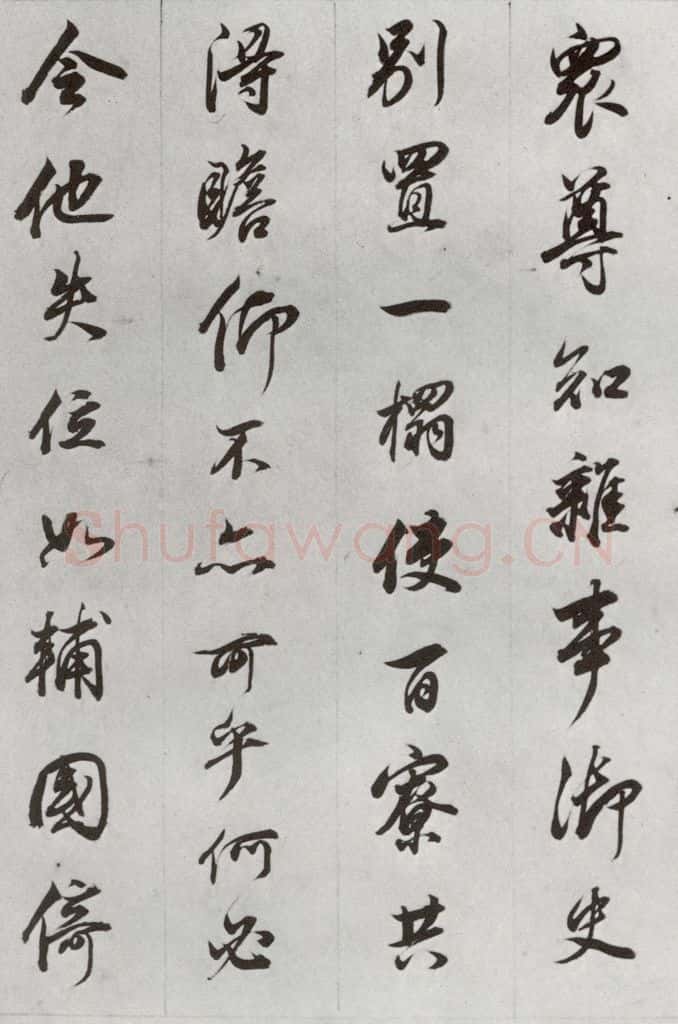 衆尊知雜事御史
別置一榻使百寮共
得瞻仰不亦可乎何必
令他失位如輔國倚
Shufawang.CN